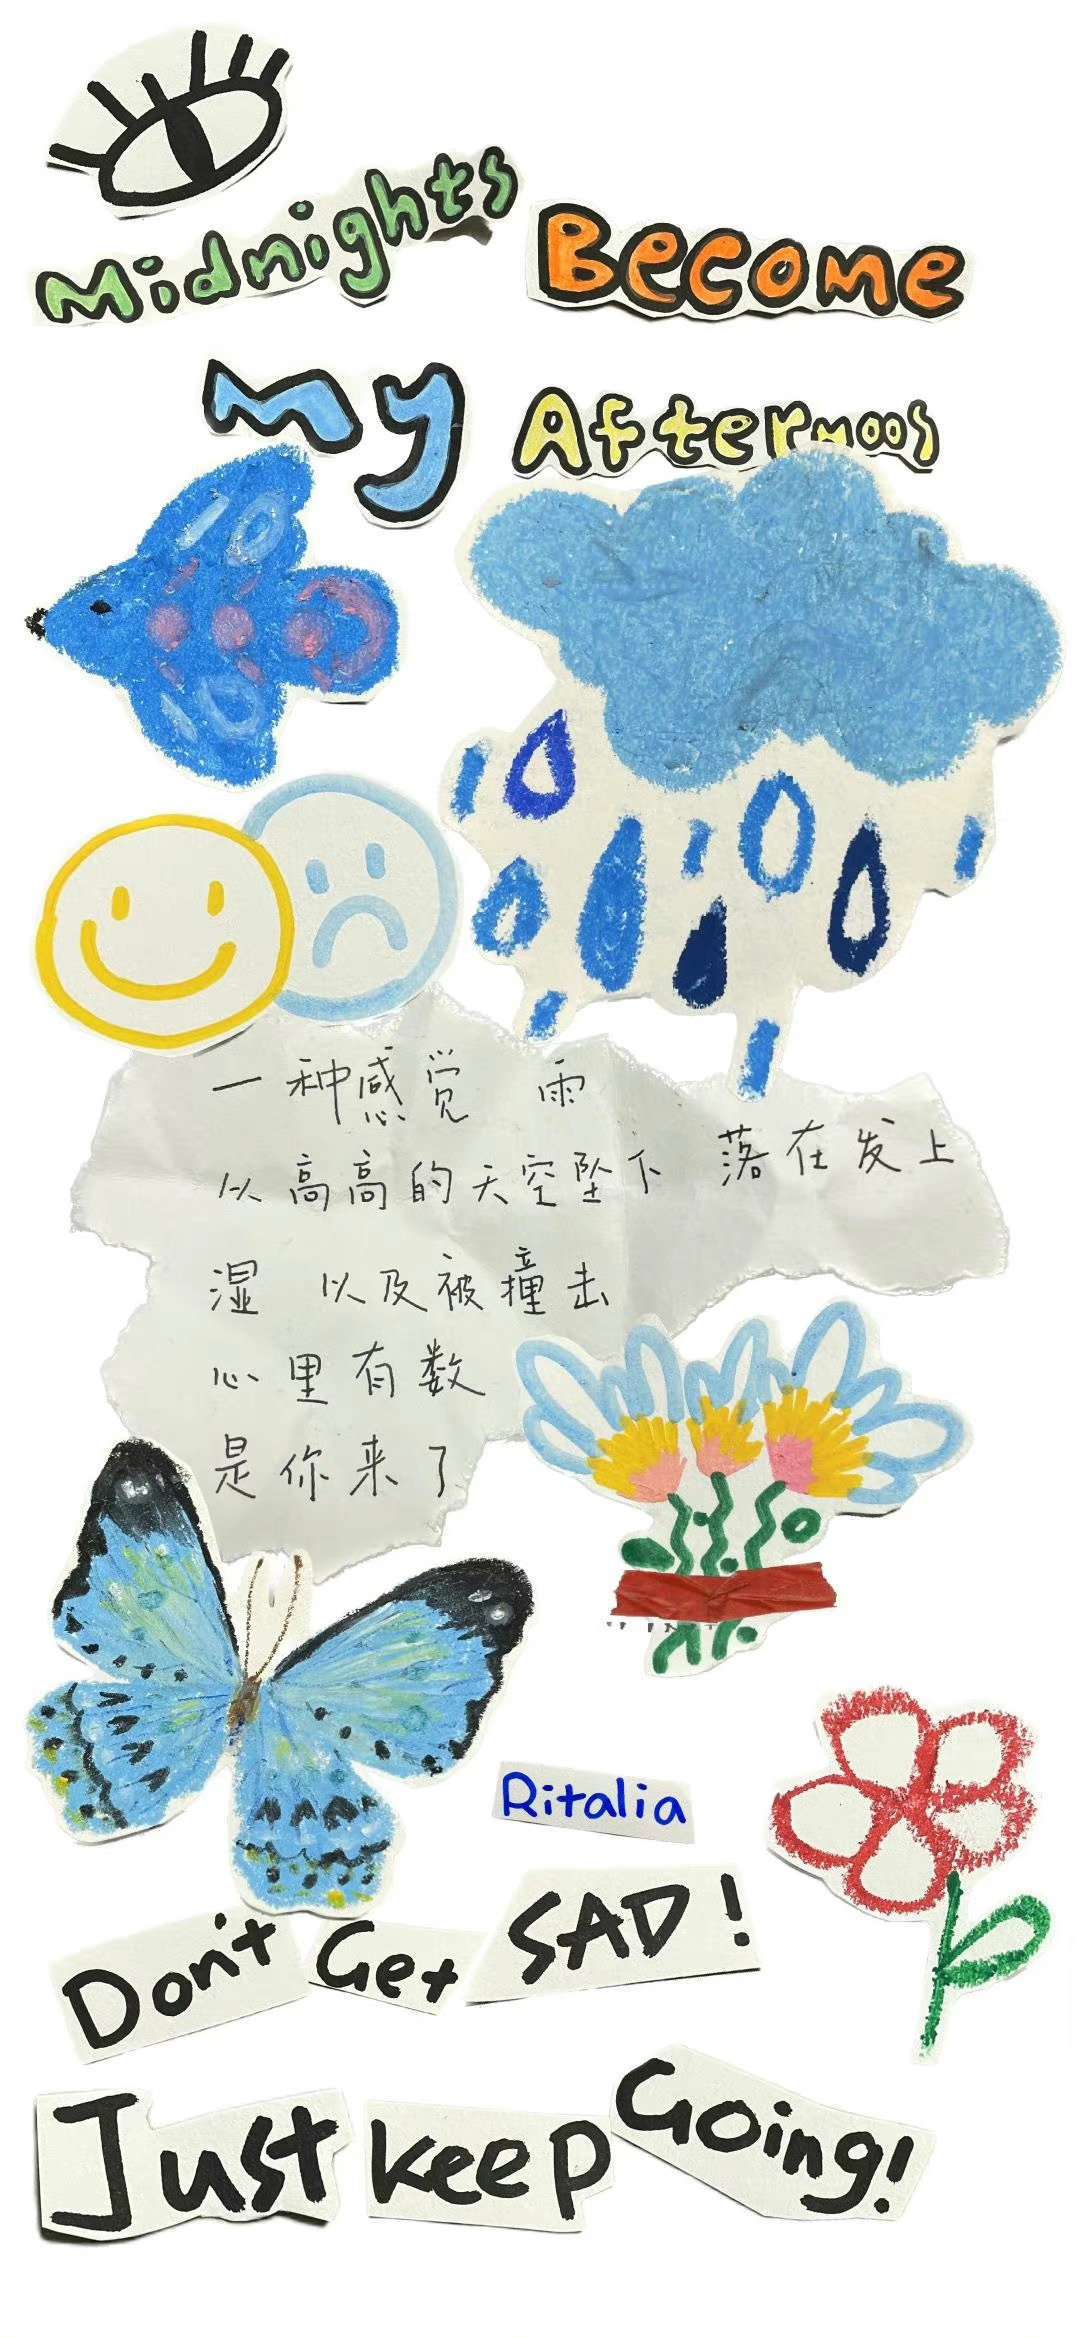 Midnights Become
My Afternoos
一种感觉 雨
以高高的天空坠下 落在发上
湿 以及被撞击
心里有数
是你来了
Ritalia
Don't Get SAD!
Just keep Going!